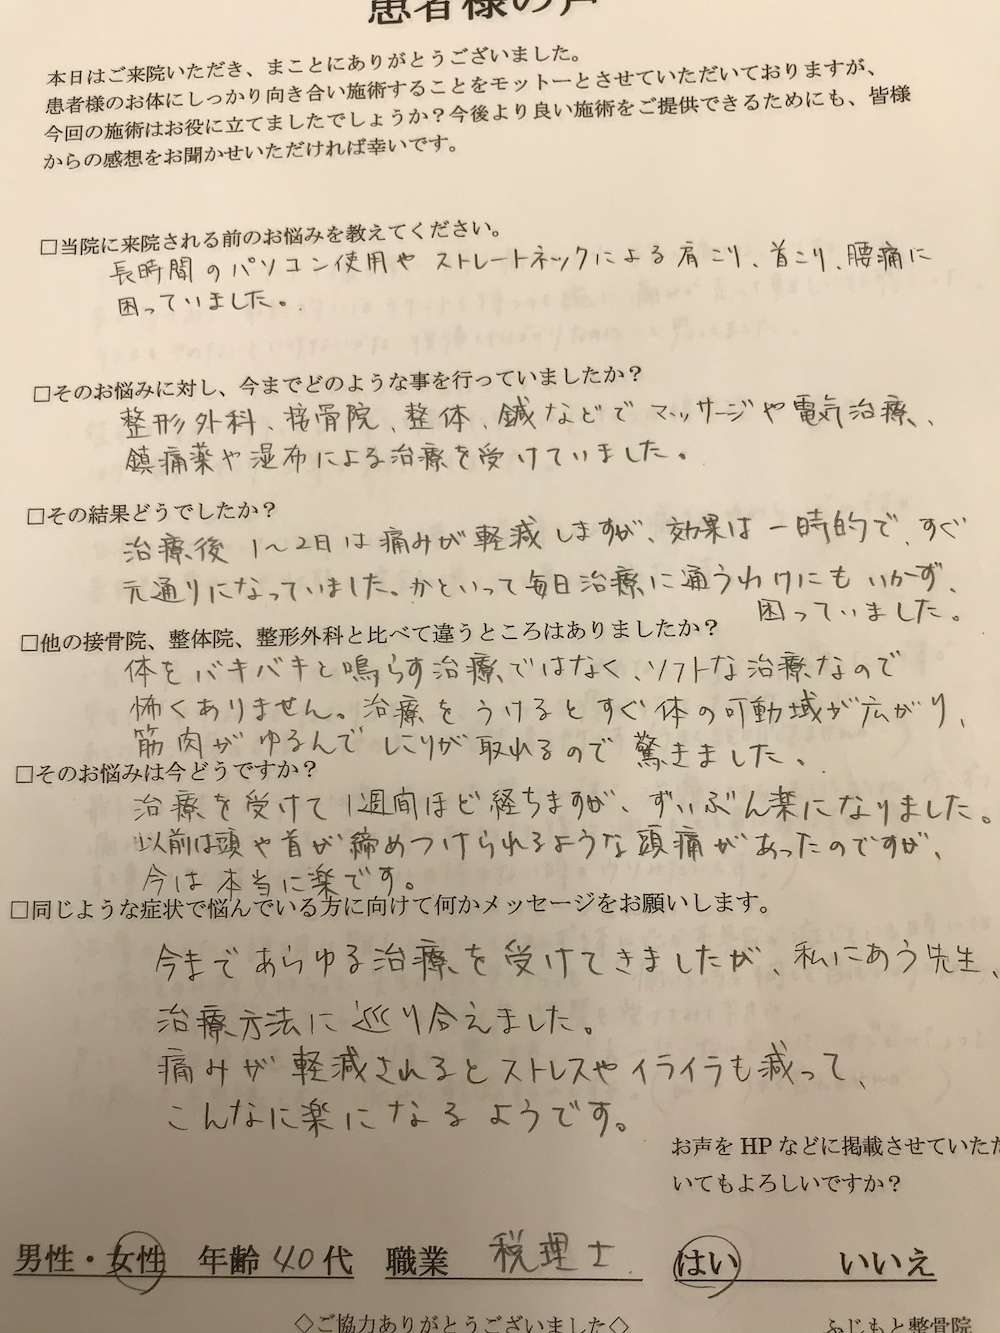 患者様の声
本日はご来院いただき、まことにありがとうございました。
患者様のお体にしっかり向き合い施術することをモットーとさせていただいておりますが、
今回の施術はお役に立てましたでしょうか？今後より良い施術をご提供できるためにも、皆様
からの感想をお聞かせいただければ幸いです。
□当院に来院される前のお悩みを教えてください。
長時間のパソコン使用や ストレートネックによる肩こり、首こり、腰痛に
困っていました。
□そのお悩みに対し、今までどのような事を行っていましたか？
整形外科、接骨院、整体、鍼などで マッサージや電気治療、
鎮痛薬や湿布による治療を受けていました。
□その結果どうでしたか？
治療後 1〜2日は痛みが軽減しますが、効果は一時的で、すぐ
元通りになっていました。かといって毎日治療に通うわけにもいかず、
困っていました。
□他の接骨院、整体院、整形外科と比べて違うところはありましたか？
体をバキバキと鳴らす治療ではなく、ソフトな治療なので
怖くありません。治療をうけるとすぐ体の可動域が広がり、
筋肉がゆるんでしこりが取れるので驚きました。
□そのお悩みは今どうですか？
治療を受けて1週間ほど経ちますが、ずいぶん楽になりました。
以前は頭や首が締めつけられるような頭痛があったのですが、
今は本当に楽です。
□同じような症状で悩んでいる方に向けて何かメッセージをお願いします。
今まであらゆる治療を受けてきましたが、私にあう先生、
治療方法に巡り合えました。
痛みが軽減されるとストレスやイライラも減って、
こんなに楽になるようです。
お声を HP などに掲載させていただ
いてもよろしいですか？
男性・女性 年齢 40代 職業 税理士 はい いいえ
◇ご協力ありがとうございました◇
ふじもと整骨院